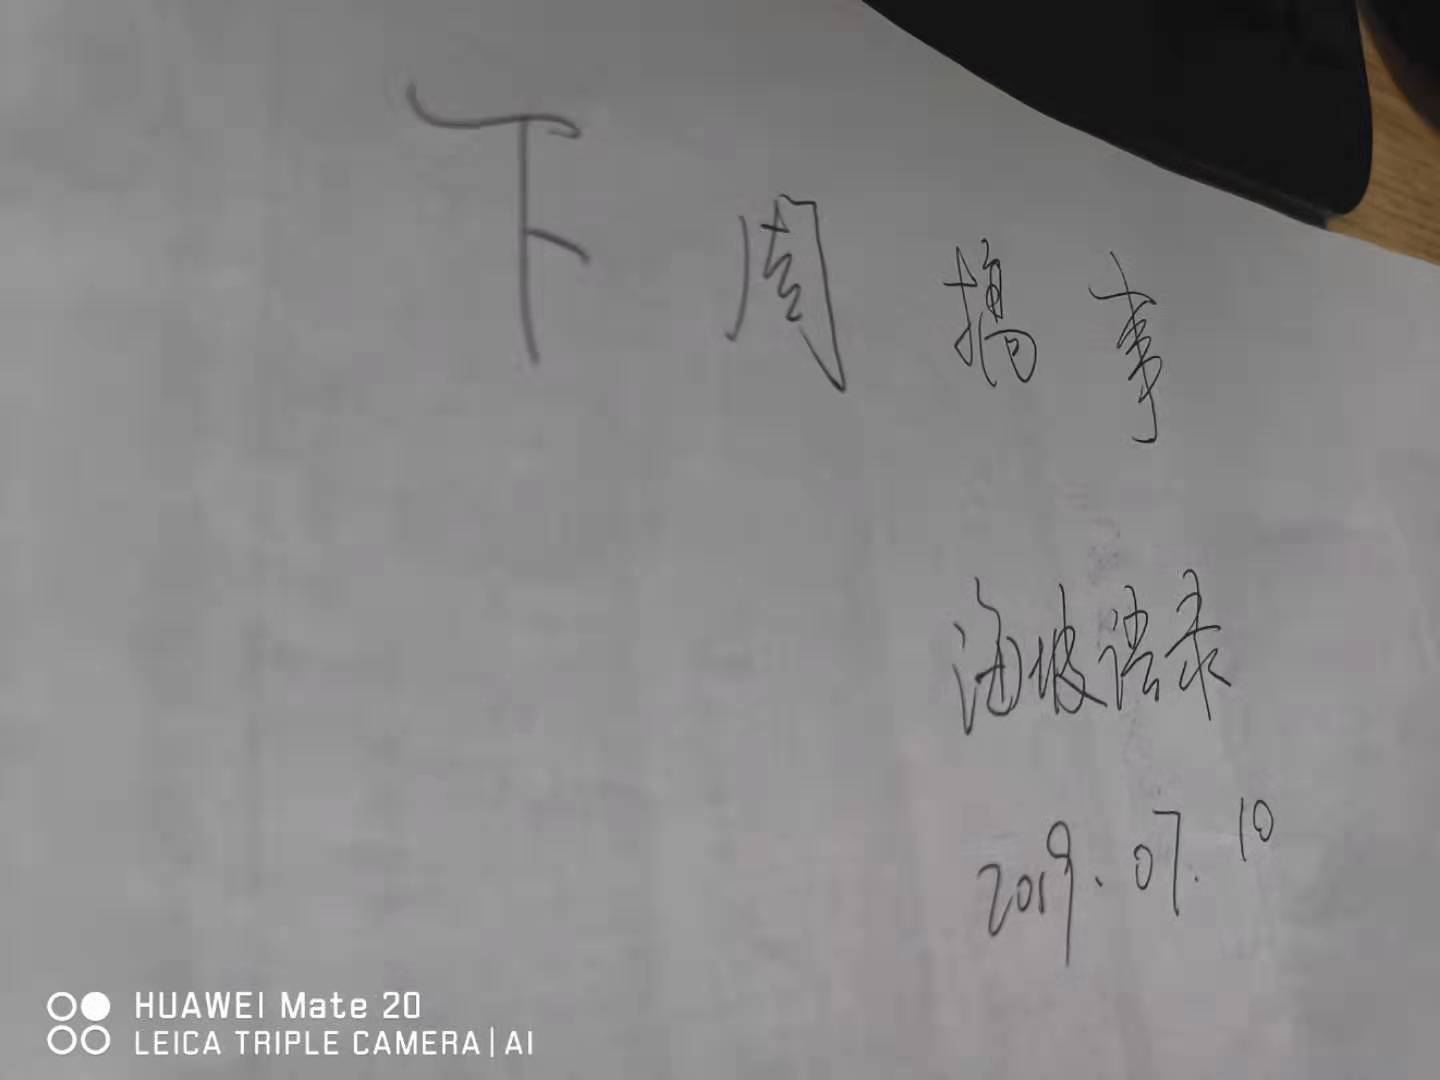 下周搞事
海坡语录
2019.07.10
HUAWEI Mate 20
LEICA TRIPLE CAMERA|AI